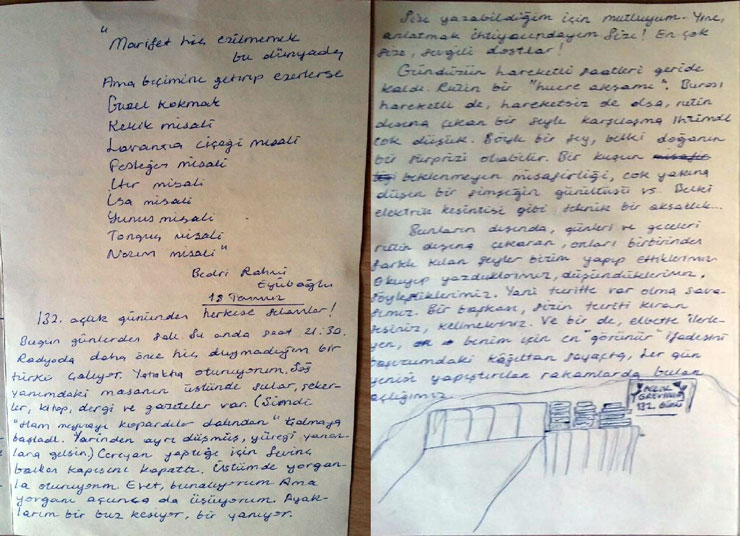 "
Marifet hiç ezilmemek
bu dünyada,
Ama biçimine getirip ezerlerse
Güzel kokmak
Kekik misali
Lavanta çiçeği misali
Fesleğen misali
Itır misali
İsa misali
Yunus misali
Tonguç misali
Nazım misali"
Bedri Rahmi
Eyüboğlu
18 Temmuz
132. açlık gününden herkese selamlar!
Bugün günlerden salı. Şu anda saat 21:30.
Radyoda daha önce hiç duymadığım bir
türkü çalıyor. Yatakta oturuyorum. Sağ
yanımdaki masanın üstünde sular, şeker-
ler, kitap, dergi ve gazeteler var. (Şimdi
"Ham meyvayı kopardılar dalından" çalmaya
başladı. Yarinden ayrı düşmüş, yüreği yanan-
lara gelsin.) Cereyan yaptığı için Sevinç
balkon kapısını kapattı. Üstümde yorgan-
la oturuyorum. Evet, bunalıyorum. Ama
yorganı açınca da üşüyorum. Ayak-
larım bir buz kesiyor, bir yanıyor.
Size yazabildiğim için mutluyum. Yine,
anlatmak ihtiyacındayım size! En çok
size, sevgili dostlar!
Gündüzün hareketli saatleri geride
kaldı. Rutin bir "hücre akşamı". Burası
hareketli de, hareketsiz de olsa, rutin
dışına çıkan bir şeyle karşılaşma ihtimali
çok düşük. Böyle bir şey, belki doğanın
bir sürprizi olabilir. Bir kuşun
beklenmeyen misafirliği, çok yakına
düşen bir şimşeğin gürültüsü vs. Belki
elektrik kesintisi gibi teknik bir aksaklık...
Bunların dışında, günleri ve geceleri
rutin dışına çıkaran, onları birbirinden
farklı kılan şeyler bizim yapıp ettiklerimiz.
Okuyup yazdıklarımız, düşündüklerimiz,
söyleştiklerimiz. Yani tecritte var olma sava-
şımız. Bir başkası, sizin tecriti kıran
sesiniz, kelimeleriniz. Ve bir de, elbette ilerle-
yen, benim için en "görünür" ifadesini
başucumdaki kâğıttan sayaçta, her gün
yenisi yapıştırılan rakamlarda bulan
açlığımız.
AÇLIK
GREVİNİN
132. GÜNÜ